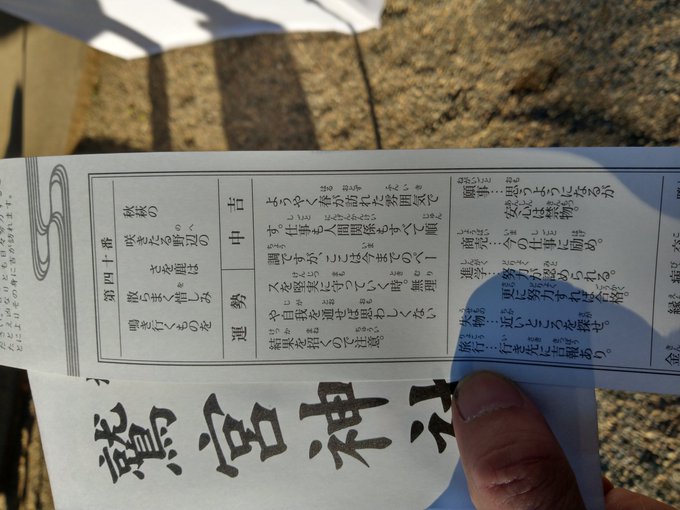 とによりその身に吉が訪れます。
第四十番
秋萩の
咲きたる野辺の
さを鹿は
散らまく惜しみ
鳴き行くものを
運勢 中吉
ようやく春が訪れた雰囲気で
す。仕事も人間関係もすべて順
調ですが、ここは今までのペー
スを堅実に守っていく時。無理
や自我を通せば思わしくない
結果を招くので注意。
願事…思うようになるが
安心は禁物。
商売…今の仕事に励め。
進学…努力が認められる。
更に努力すれば合格。
失物…近いところを探せ。
旅行…行き先に吉報あり。
鷲宮神社